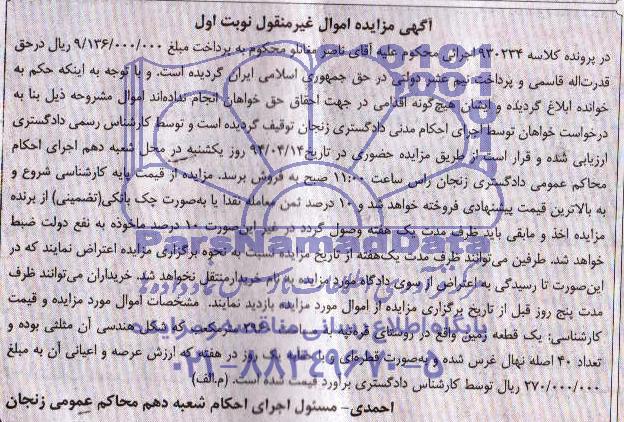 آگهی مزایده اموال غیرمنقول نوبت اول
در پرونده کلاسه ۹۳۰۲۳۴ اجرائی محکوم علیه آقای ناصر مغانلو محکوم به پرداخت مبلغ ۹/۱۳۶/۰۰۰/۰۰۰ ریال درحق
قدرت‌اله قاسمی و پرداخت نیم عشر دولتی در حق جمهوری اسلامی ایران گردیده است. و با توجه به اینکه حکم به
خوانده ابلاغ گردیده و ایشان هیچ‌گونه اقدامی در جهت احقاق حق خواهان انجام نداده‌اند اموال مشروحه ذیل بنا به
درخواست خواهان توسط اجرای احکام مدنی دادگستری زنجان توقیف گردیده است و توسط کارشناس رسمی دادگستری
ارزیابی شده و قرار است از طریق مزایده حضوری در تاریخ ۹۴/۰۴/۱۴ روز یکشنبه در محل شعبه دهم اجرای احکام
محاکم عمومی دادگستری زنجان راس ساعت ۱۱:۰۰ صبح به فروش برسد. مزایده از قیمت پایه کارشناسی شروع و
به بالاترین قیمت پیشنهادی فروخته خواهد شد و ۱۰ درصد ثمن معامله نقدا یا به‌صورت چک بانکی(تضمینی) از برنده
مزایده اخذ و مابقی باید ظرف مدت یک هفته وصول گردد در غیر این‌صورت ۱۰ درصد ماخوذه به نفع دولت ضبط
خواهد شد. طرفین می‌توانند ظرف مدت یک‌هفته از تاریخ مزایده نسبت به نحوه برگزاری مزایده اعتراض نمایند که در
این‌صورت تا رسیدگی به اعتراض از سوی دادگاه مورد مزایده به نام خریدار منتقل نخواهد شد. خریداران می‌توانند ظرف
مدت پنج روز قبل از تاریخ برگزاری مزایده از اموال مورد مزایده بازدید نمایند. مشخصات اموال مورد مزایده و قیمت
کارشناسی: یک قطعه زمین واقع در روستای به مترمربع که شکل هندسی آن مثلثی بوده و
تعداد ۴۰ اصله نهال غرس شده و به‌صورت قطره‌ای و با حقابه یک روز در هفته که ارزش عرصه و اعیانی آن به مبلغ
۲۷۰/۰۰۰/۰۰۰ ریال توسط کارشناس دادگستری برآورد قیمت شده است. (م.الف)
احمدی- مسئول اجرای احکام شعبه دهم محاکم عمومی زنجان
ParsNamadData
پایگاه اطلاع رسانی مناقصه و مزایده
۰۲۱-۸۸۳۴۹۶۷۰-۵